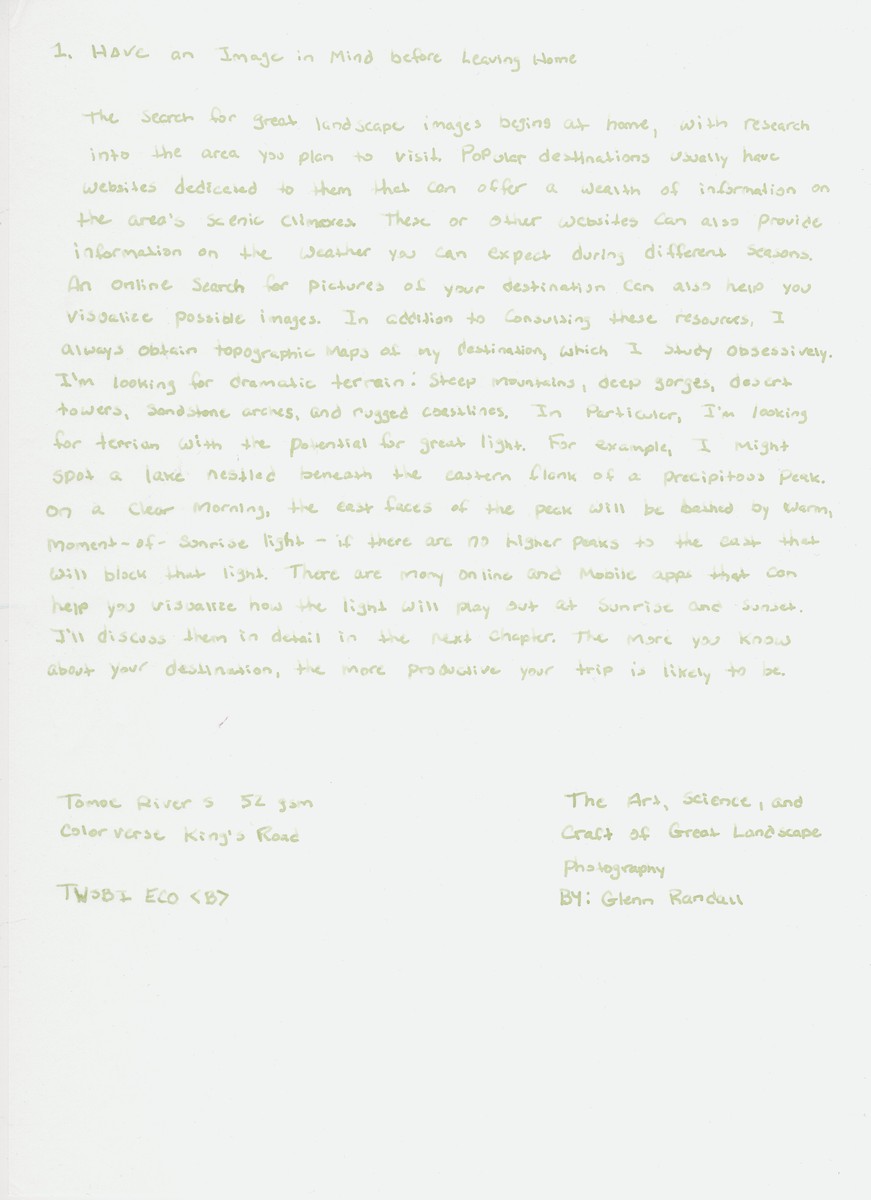 1. Have an Image in Mind before Leaving Home
The search for great landscape images begins at home, with research
into the area you plan to visit. Popular destinations usually have
websites dedicated to them that can offer a wealth of information on
the area's scenic climaxes. These or other websites can also provide
information on the weather you can expect during different seasons.
An online search for pictures of your destination can also help you
visualize possible images. In addition to consulting these resources, I
always obtain topographic maps of my destination, which I study obsessively.
I'm looking for dramatic terrain: steep mountains, deep gorges, desert
towers, sandstone arches, and rugged coastlines. In particular, I'm looking
for terrian with the potential for great light. For example, I might
spot a lake nestled beneath the eastern flank of a precipitous peak.
On a clear morning, the east faces of the peak will be bathed by warm,
moment-of-sunrise light - if there are no higher peaks to the east that
will block that light. There are many online and mobile apps that can
help you visualize how the light will play out at sunrise and sunset.
I'll discuss them in detail in the next chapter. The more you know
about your destination, the more productive your trip is likely to be.
Tomoe River S 52 gsm
Colorverse King's Road
TWSBI ECO <B>
The Art, Science, and
Craft of Great Landscape
Photography
BY: Glenn Randall